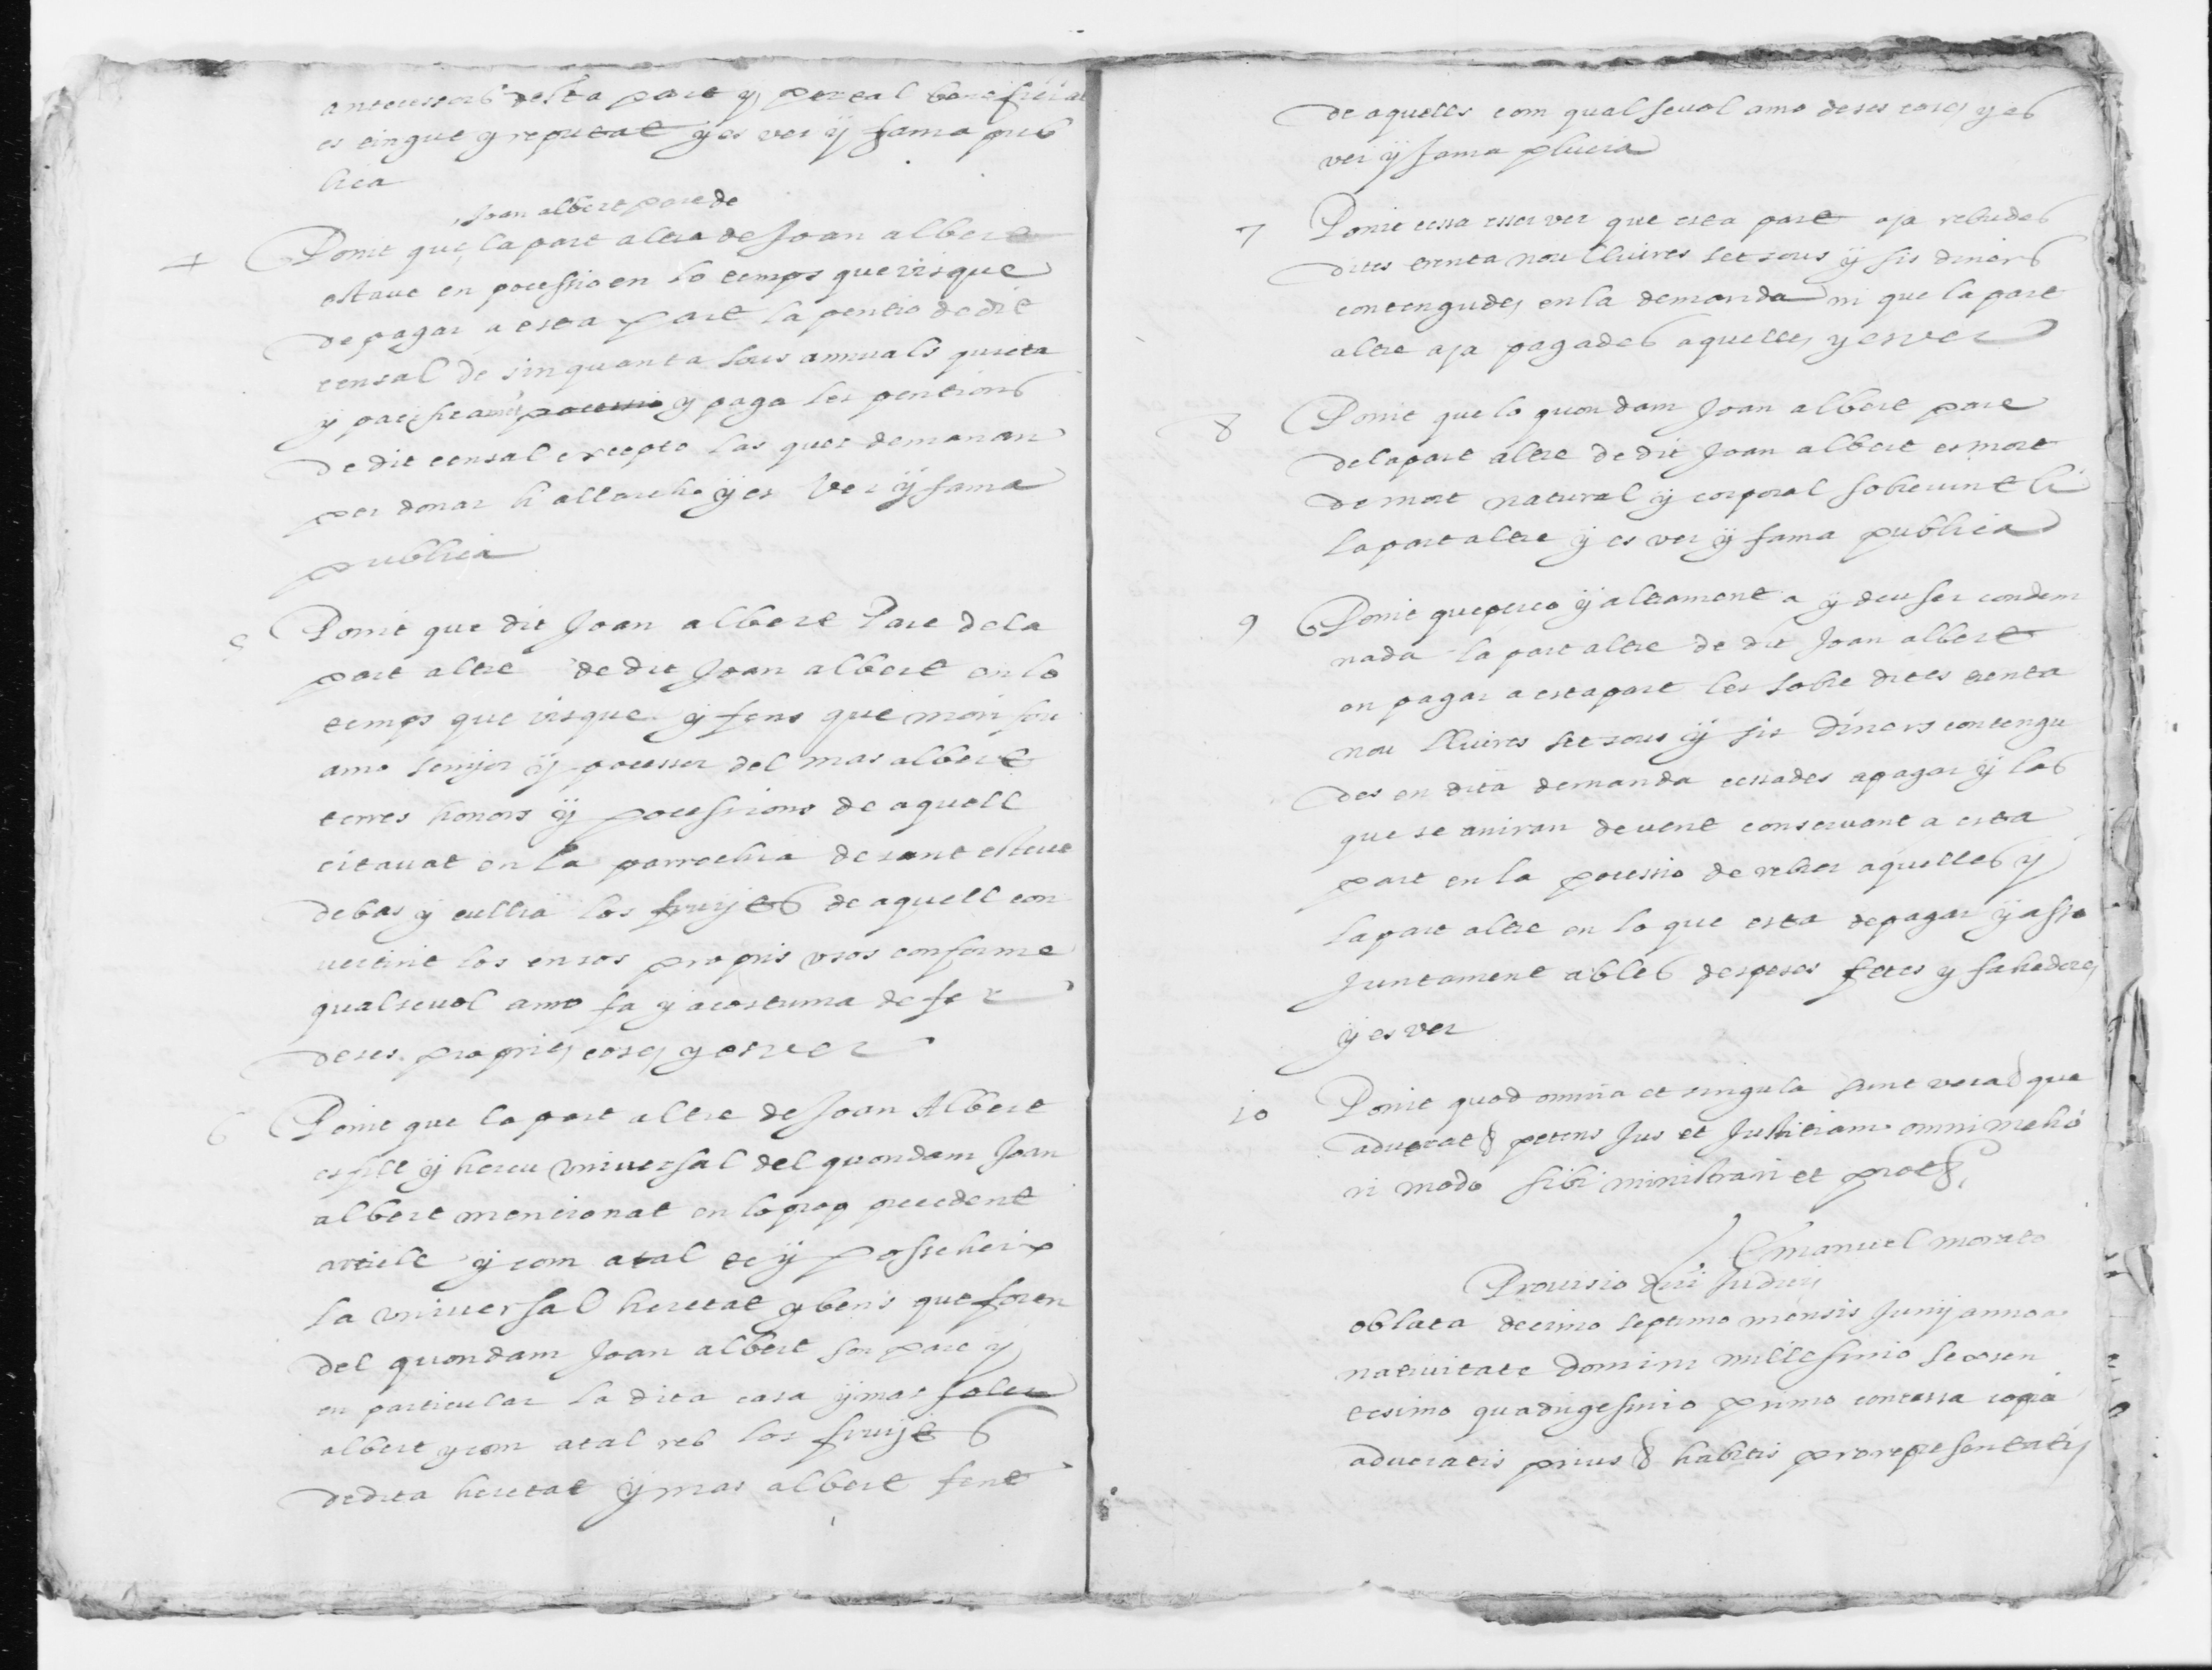 antecessors desta part y per tal beneficiat
es tingut y reputat y es ver ÿ fama pub
lica
Joan albert pare de
4 Ponit que la part altra de Joan albert
estave en pocessio en lo temps que visque
de pagar a esta part la pentio de dit
censal de sinquanta sous annuals quieta
y pacificament pocessio y paga les pentions
de dit censal excepto las ques demanan
per donar hi alloch ÿ es ver ÿ fama
publica
5 Ponit que dit Joan albert Pare de la
part altre de dit Joan albert en lo
temps que visque y fens que mori fou
amo senyor ÿ pocessor del mas albert
terres honors ÿ pocessions de aquell
citauat en la parrochia de sant esteue
debas y cullia los fruÿts de aquell con
uertint los en sos propris vsos conforme
qualseuol amo fa y acostuma de fer
de ses propries coses y es ver
6 Ponit que la part altre de Joan Albert
es fill ÿ hereu vniuersal del quondam Joan
albert mentionat en lo prop precedent
article y com atal te ÿ posseheix
la vniuersal heretat y bens que foren
del quondam Joan albert son pare y
en particular la dita casa ÿ mas
albert y com atal reb los fruÿts
de dita heretat ÿ mas albert fent
de aquells com qualseuol amo de ses coses y es
ver ÿ fama
7 Ponit cessa esser ver que esta part aja rebudes
dites trenta nou lliures set sous ÿ sis diners
contengudes en la demanda ni que la part
altre aja pagades aquelles y es ver
8 Ponit que lo quondam Joan albert pare
de la part altre de dit Joan albert es mort
de mort natural ÿ corporal sobreuint li
la part altre ÿ es ver ÿ fama publica
9 Ponit que perço ÿ altrament a ÿ deu ser condem
nada la part altre de dit Joan albert
en pagar a esta part les sobre dites trenta
nou lliures set sous ÿ sis diners contengu
des en dita demanda cessades a pagar ÿ las
que se aniran devent conservant a esta
part en la pocessio de rebrer aquelles y
la part altre en lo que esta de pagar ÿ asso
Juntament ab les despeses fetes y fahedores
ÿ es ver
10 Ponit quod omnia et singula sunt vera que
aduerat petens Jus et Justitiam omni melio
ri modo sibi ministrari et
Emanuel morato
Prouisio
oblata decimo septimo mensis Junÿ anno a
natiuitate Domini millesimo sexcen
tesimo quadragesimo primo concessa copia
aduersatis prius habitis pro representatis